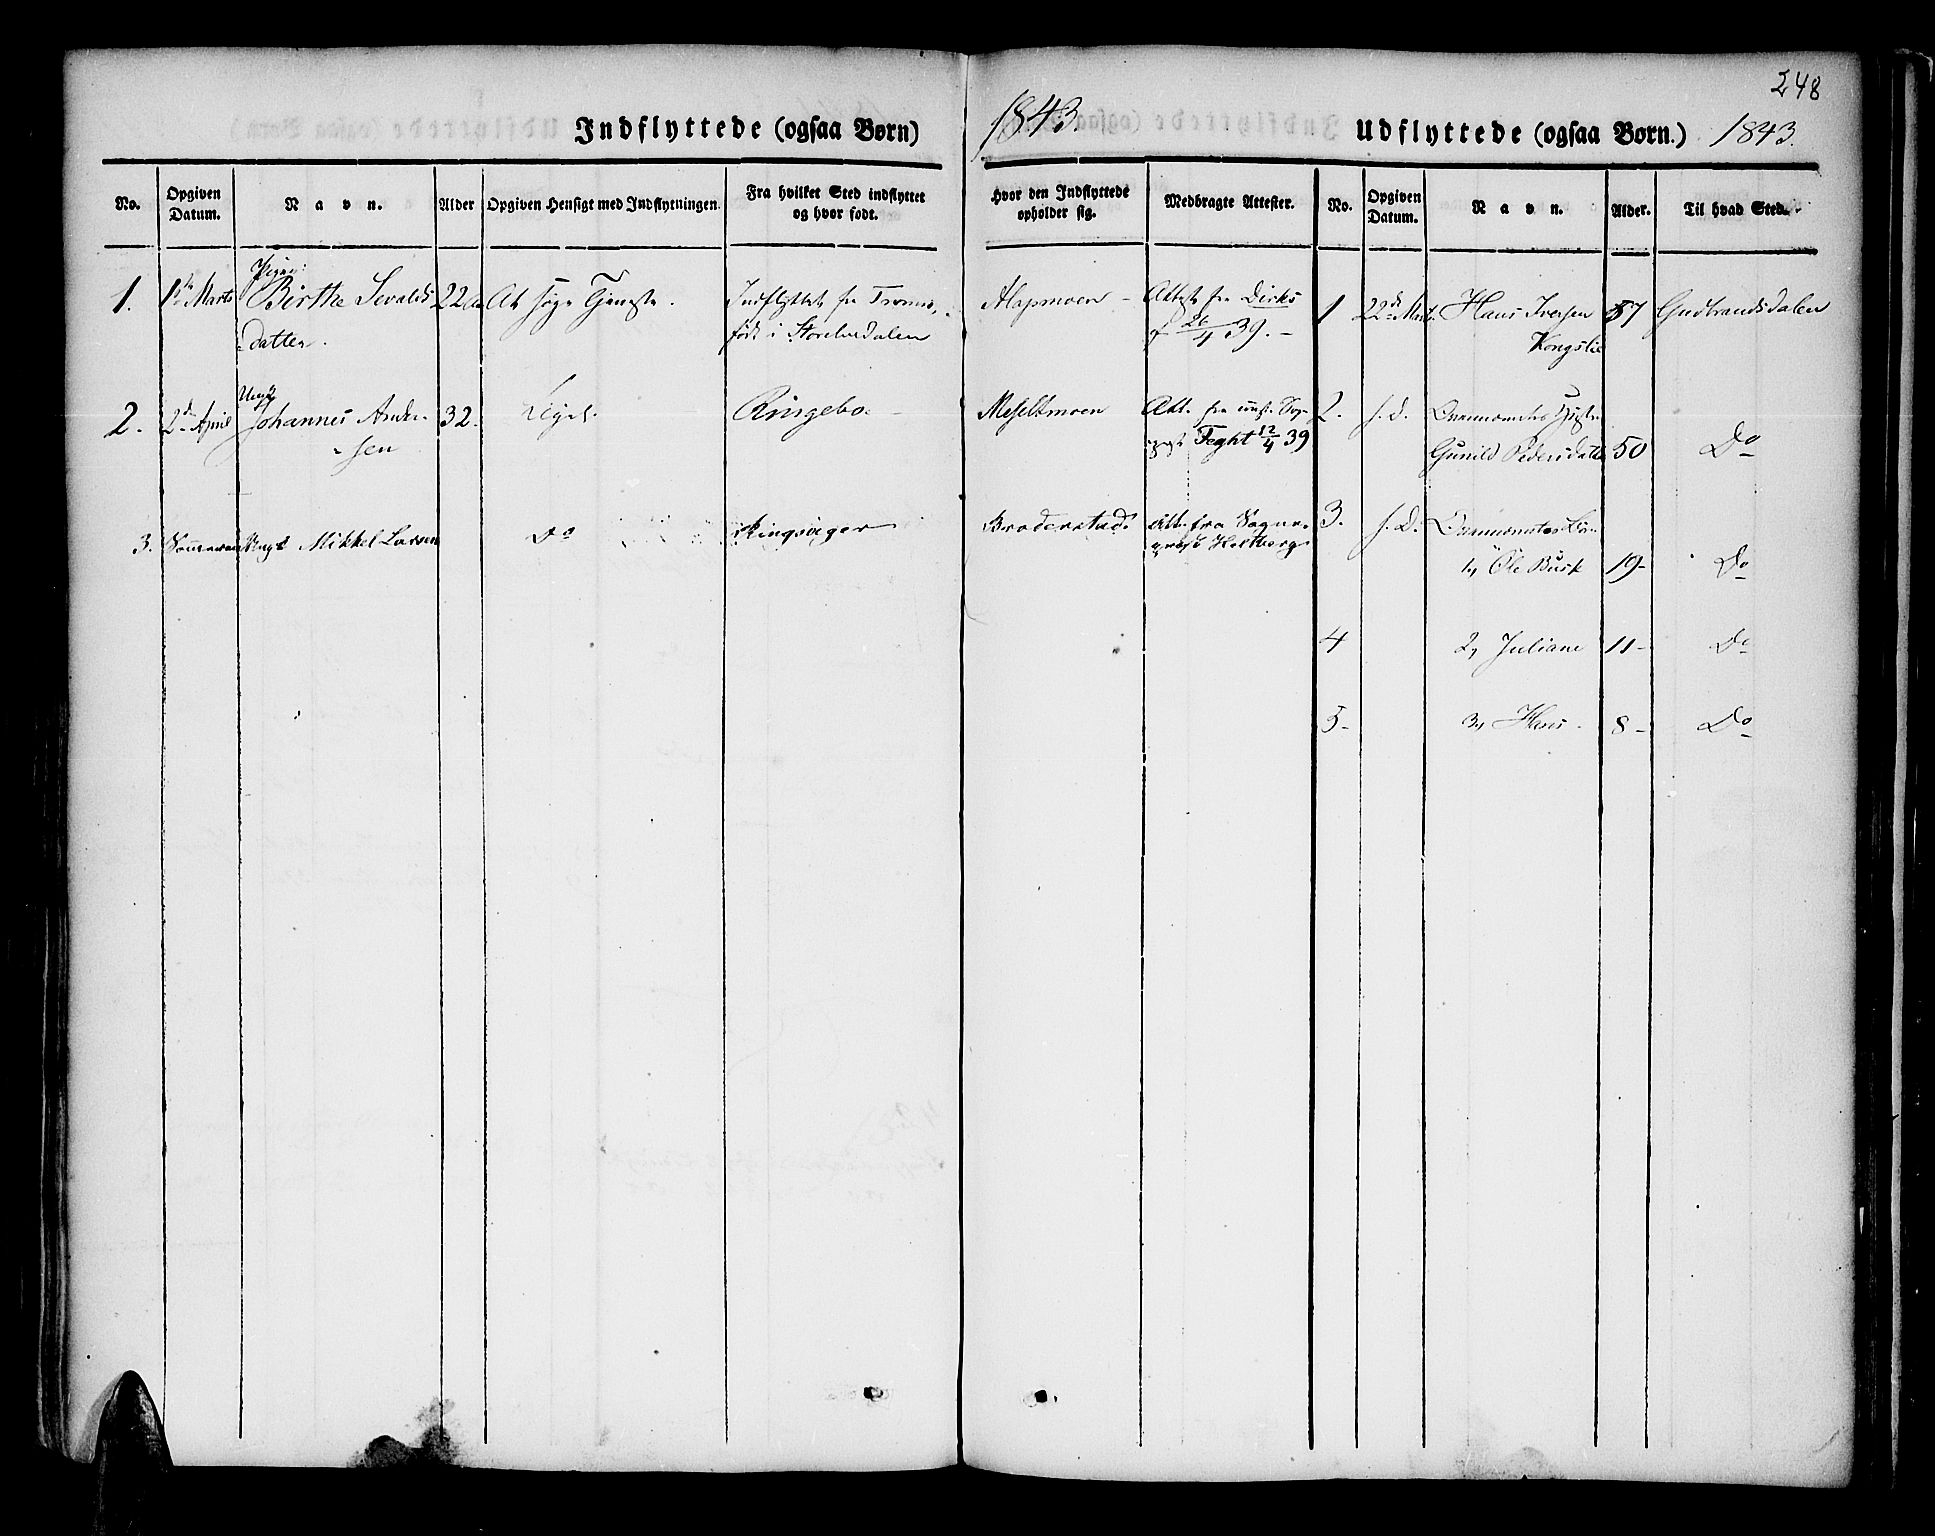 248
Indflyttede (ogsaa Børn)
1843.
Udflyttede (ogsaa Børn.) 1843.
No.
Opgiven Datum.
Navn.
Alder
Opgiven Hensigt med Indflytningen.
Fra hvilket Sted indflyttet
og hvor født.
Hvor den Indflyttede
opholder sig.
Medbragte Attester.
No.
Opgiven
Datum.
Navn.
Alder.
Til hvad Sted.
1. Marts Pigen
Birthe Sevalds 22 At søge Tjeneste. Indflyttet fra Tromsø,
datter. født i
Attest fra Dirks
26/4 39.
2. 2den April Ungk.
Johannes Ander- 32. Ligel. Ringeboe
sen
Att. fra
Feght 12/4 39
3. Ungk. Mikkel Larsen Do Ringsager
Att. fra Sogne-
præst Holtberg
1 22de Hans Iversen 57 Gudbrandsdalen
Kongslie
2. s. d.
Gunild Pedersdatter 50 Do
3. s. D.
1, Ole Busk 19- Do
4 2, Juliane 11- Do
5- 3, Hans 8- Do